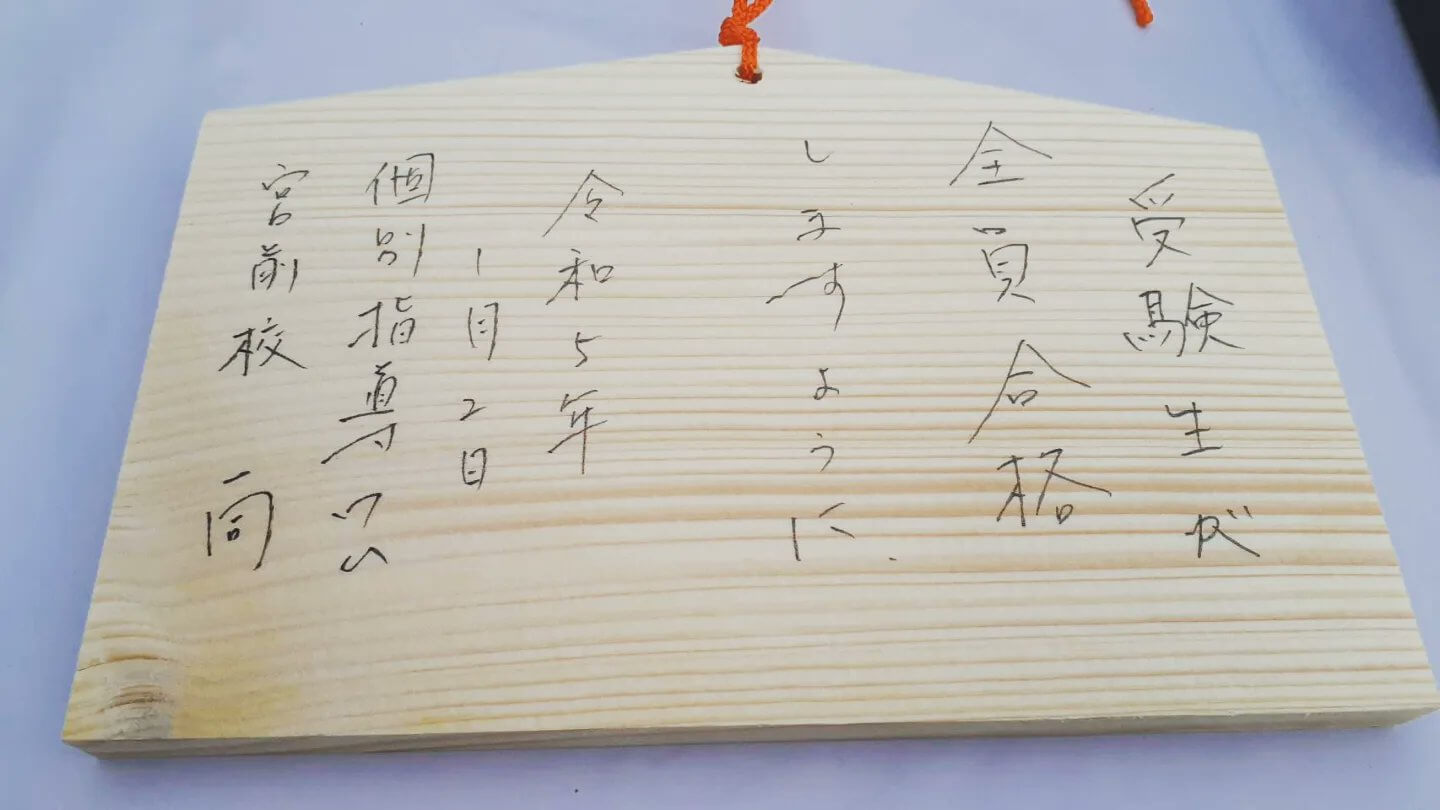 受験生が
全員合格
しますように
令和5年
1月2日
個別指導ワム
宮前校 一同